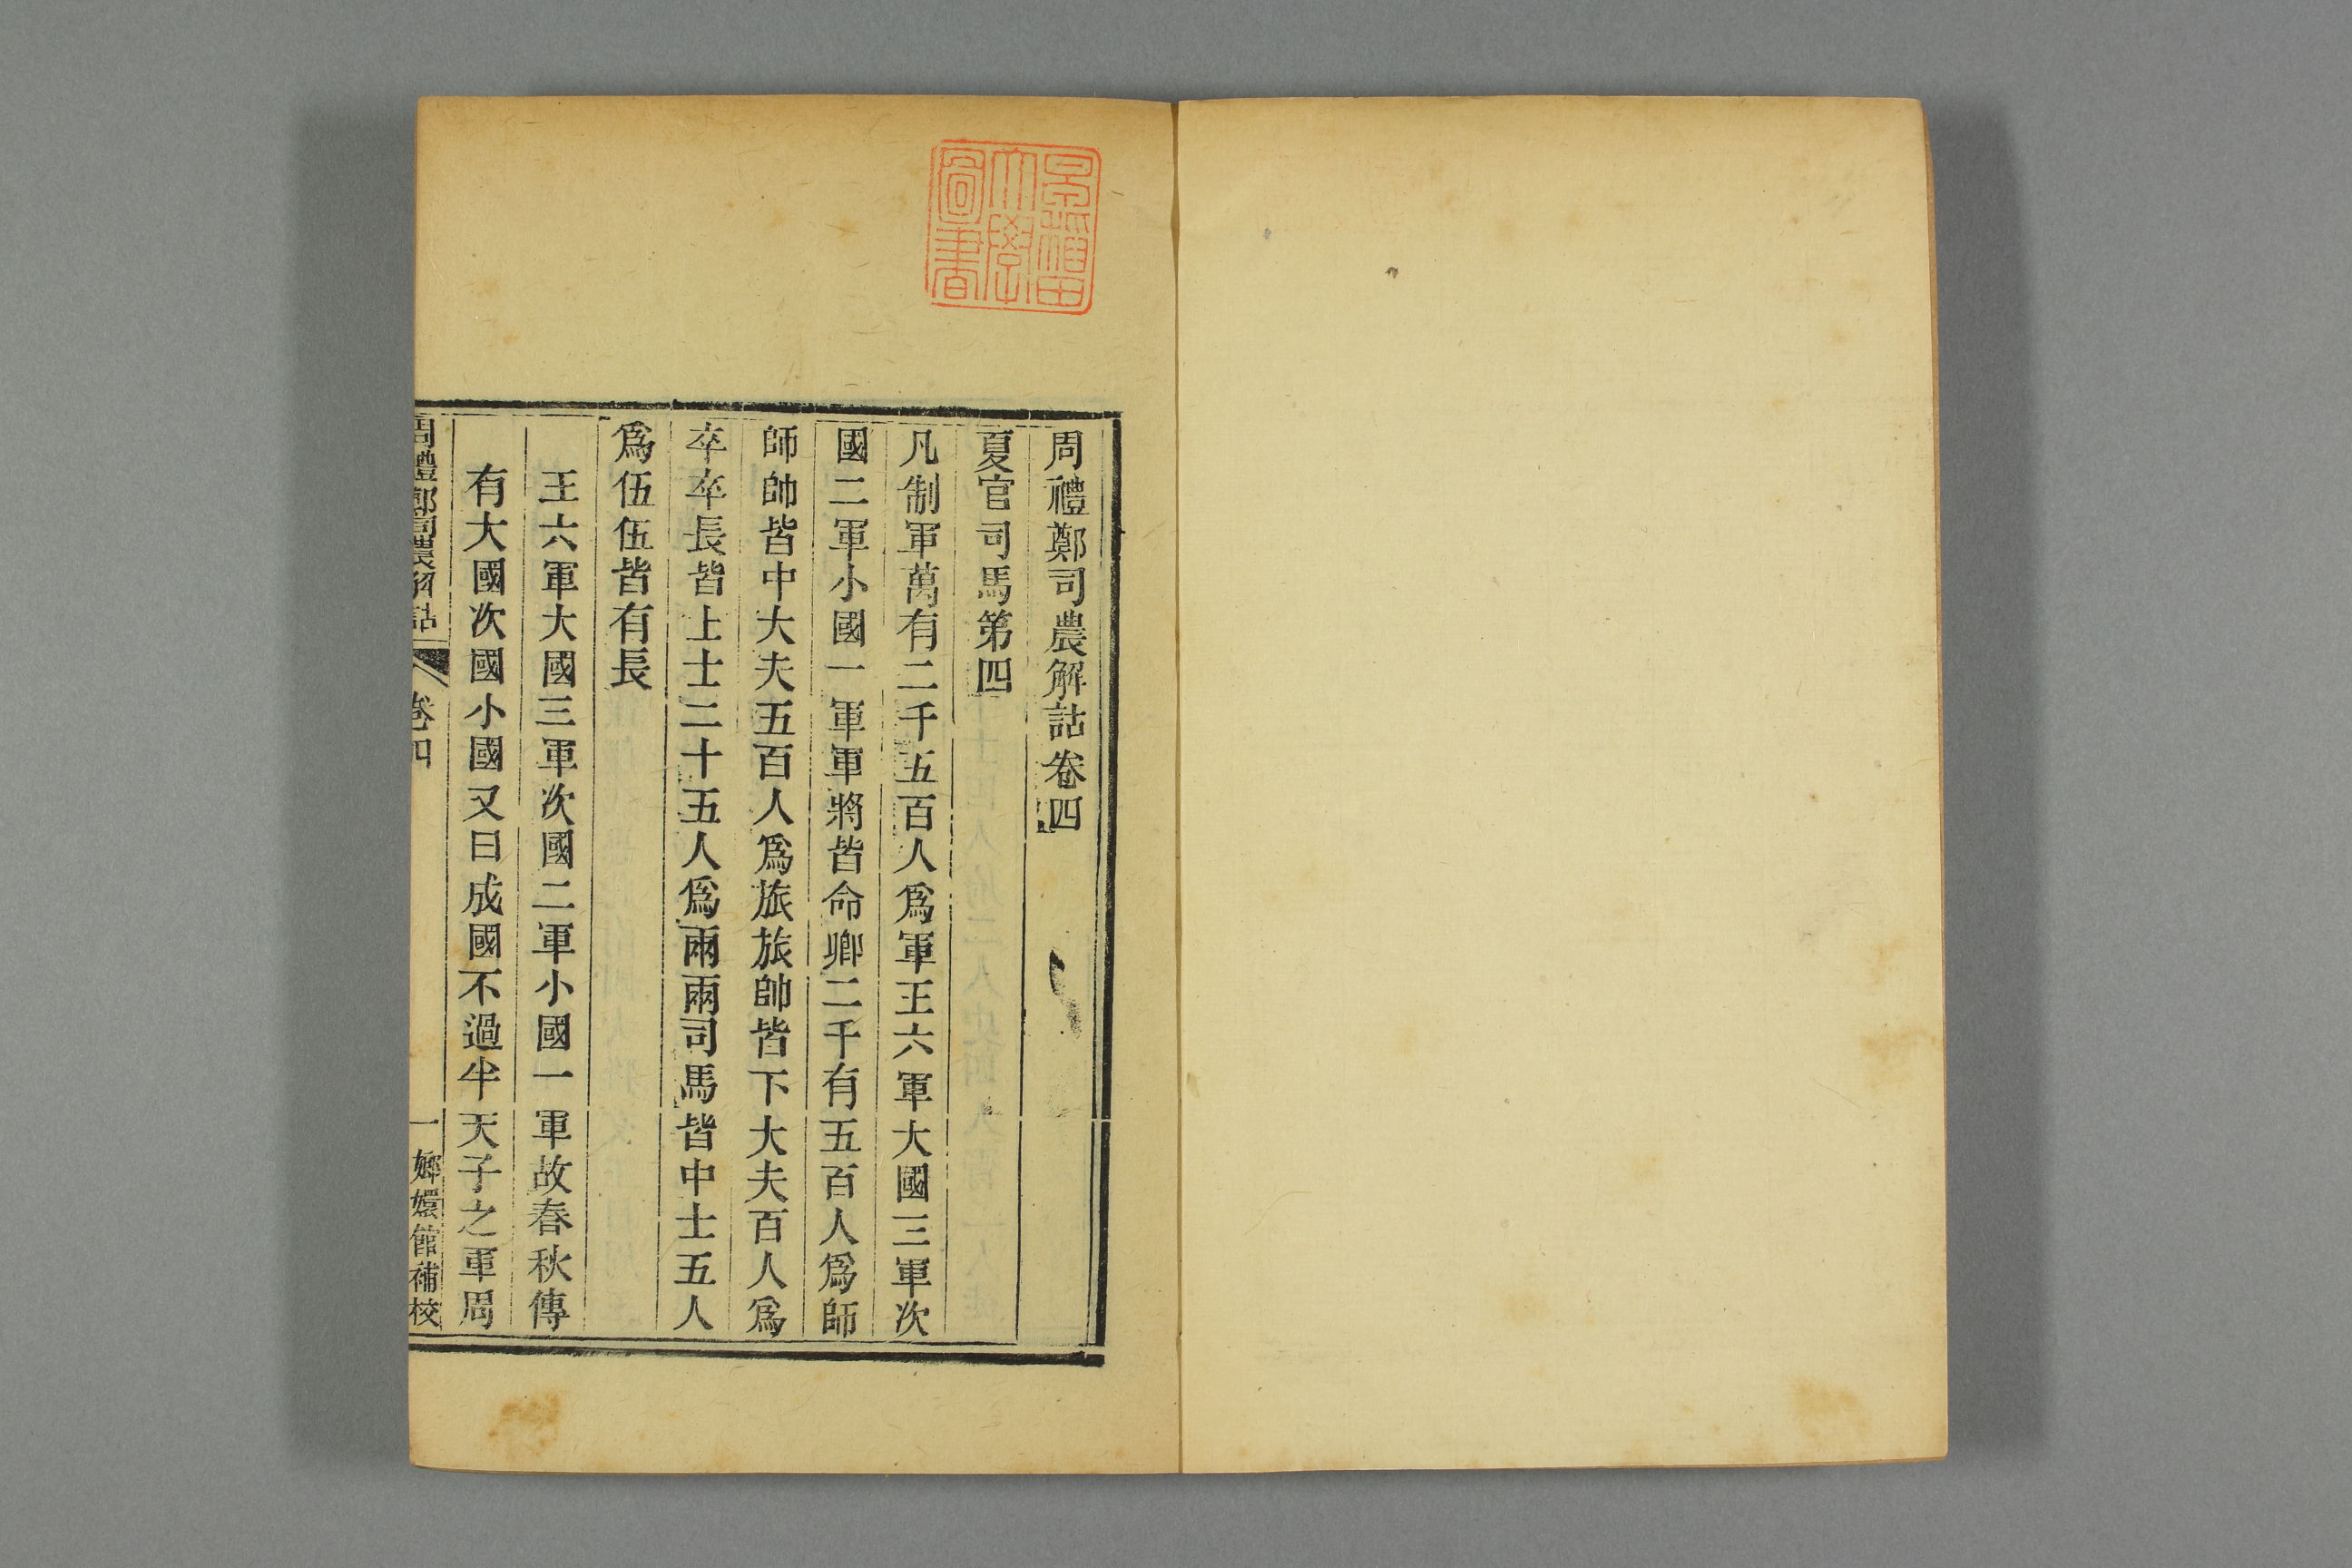 早稲田
大學
圖書
周禮鄭司農解詁卷四
夏官司馬第四
凡制軍萬有二千五百人爲軍王六軍大國三軍次
國二軍小國一軍軍將皆命卿二千有五百人爲師
師帥皆中大夫五百人爲旅旅帥皆下大夫百人爲
卒卒長皆上士二十五人爲兩兩司馬皆中士五人
爲伍伍皆有長
王六軍大國三軍次國二軍小國一軍故春秋傳
有大國次國小國又曰成國不過半天子之軍周
周禮鄭司農解詁 卷四 一 嫏嬛館補校